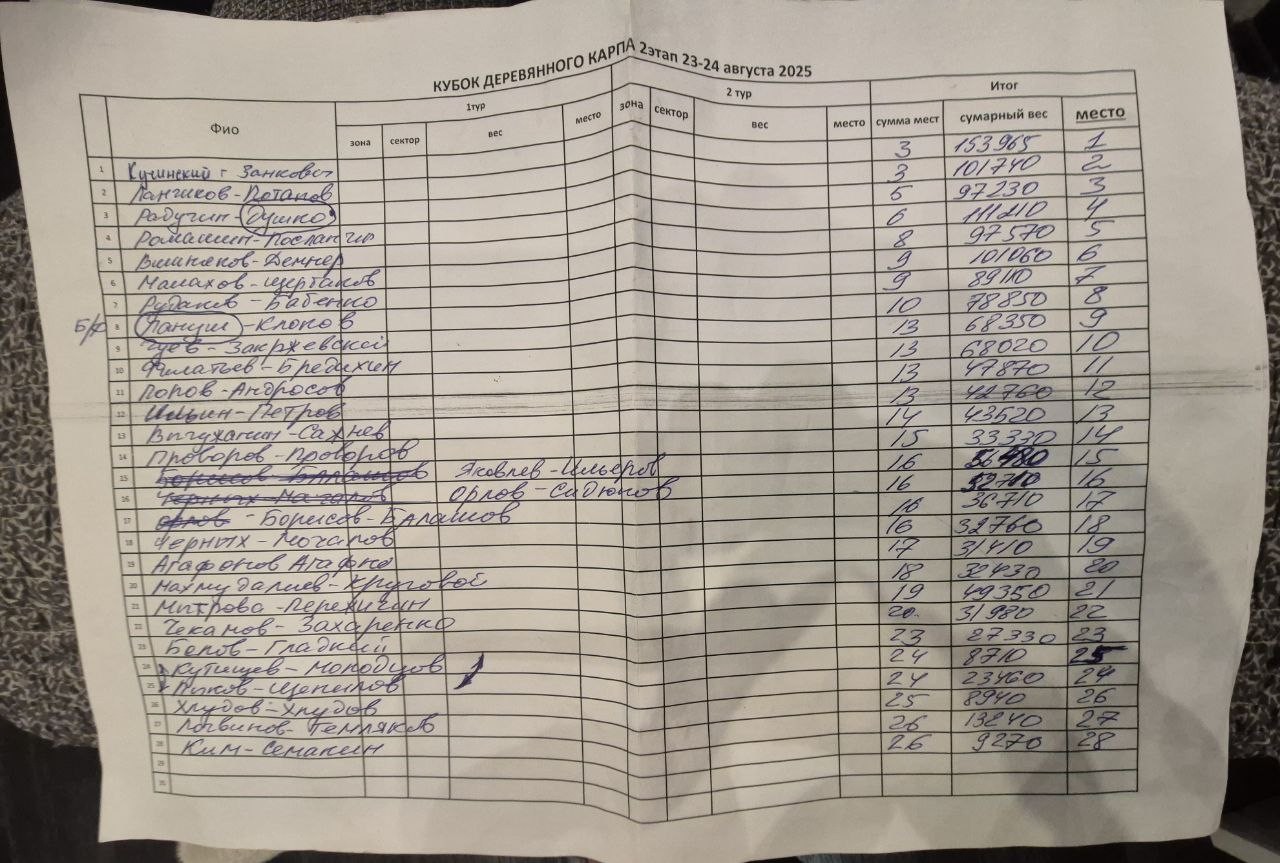 КУБОК ДЕРЕВЯННОГО КАРПА 2этап 23-24 августа 2025
Фио 1тур 2 тур Итог
зона сектор вес место зона сектор вес место сумма мест сумарный вес место
1 Кучинский г Занкович 3 153965 1
2 Лангиков-Потапов 3 101740 2
3 Радучин-Душко 5 97230 3
4 Ромашин-Посланчи 6 111210 4
5 Вишняков-Деннер 8 97570 5
6 Малахов-Щербаков 9 101060 6
7 Рудаков-Бабенко 9 89110 7
Б/Ф 8 Пануш-Клоков 10 78850 8
9 Гуев-Закржевский 13 68350 9
10 Филатьев-Бредихин 13 68020 10
11 Попов-Андросов 13 47870 11
12 Ильин-Петров 13 42760 12
13 Вичужанин-Сахнев 14 43520 13
14 Проворов-Проворов 15 33330 14
15 Борисов-Балашов Яковлев-Ильеров 16 36480 15
16 Черных-Мочалов Орлов-Сидюков 16 16
17 Орлов - Борисов-Балашов 16 36710 17
18 Черных-Мочалов 16 32760 18
19 Агафонов Агафоно 17 31410 19
20 Махмудалиев-Круговой 18 32430 20
21 Митрова-Перехичин 19 49350 21
22 Чеканов-Захаренко 20. 31980 22
23 Белов-Гладкий 23 27330 23
24 Кутищев-Молодцов 24 8710 25
25 Жуков-Щепилов 24 23460 24
26 Хлудов-Хлудов 25 8940 26
27 Логвинов-Темляков 26 13240 27
28 Ким-Семакин 26 9270 28
29
30